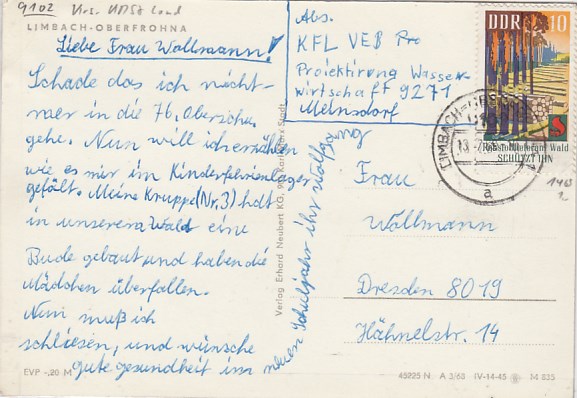 9102
LIMBACH-OBERFROHNA
Liebe Frau Wollmann!
Schade das ich nicht
mer in die 76. Oberschu.
gehe. Nun will ich erzählen
wie es mir im Kinderferienlager
gefällt. Meine Kruppe (Nr. 3) hat
in unserem Wald eine
Bude gebaut und haben die
Mädchen überfallen.
Nun muß ich
schliesen, und wünsche
gute gesundheit im
neuen Schuljahr ihr Wolfgang
EVP -,20 M
Verlag Erhard Neubert KG, Karl-Marx-Stadt
Abs.
KFL VEB Pro
Proiektirung Wasser-
wirtschaft 9271
Meinsdorf
DDR 10
Rohstofflieferant Wald
SCHÜTZT IHN
LIMBACH-OBERF
13
a
Frau
Wollmann
Dresden 8019
Hähnelstr. 14
45225 N A 3/68 IV-14-45 M 835